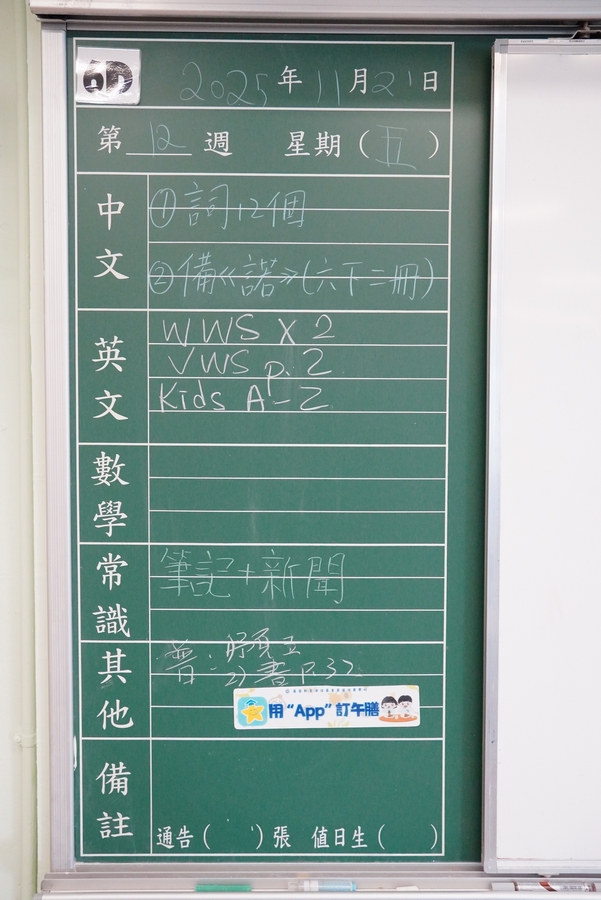 6D
2025年11月21日
第12週 星期(五)
中文
①詞12個
②備《諾》(六下二冊)
英文
WWS X 2
VWS p. 2
Kids A-Z
數學
常識
筆記+新聞
其他
普:
2) 書P.32
用“App”訂午膳
備註
通告( )張 值日生( )